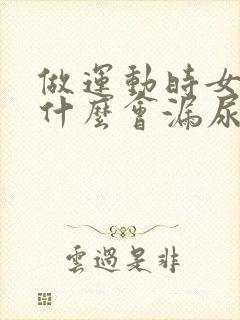 做運動時女
什麼會漏尿
雲過是非